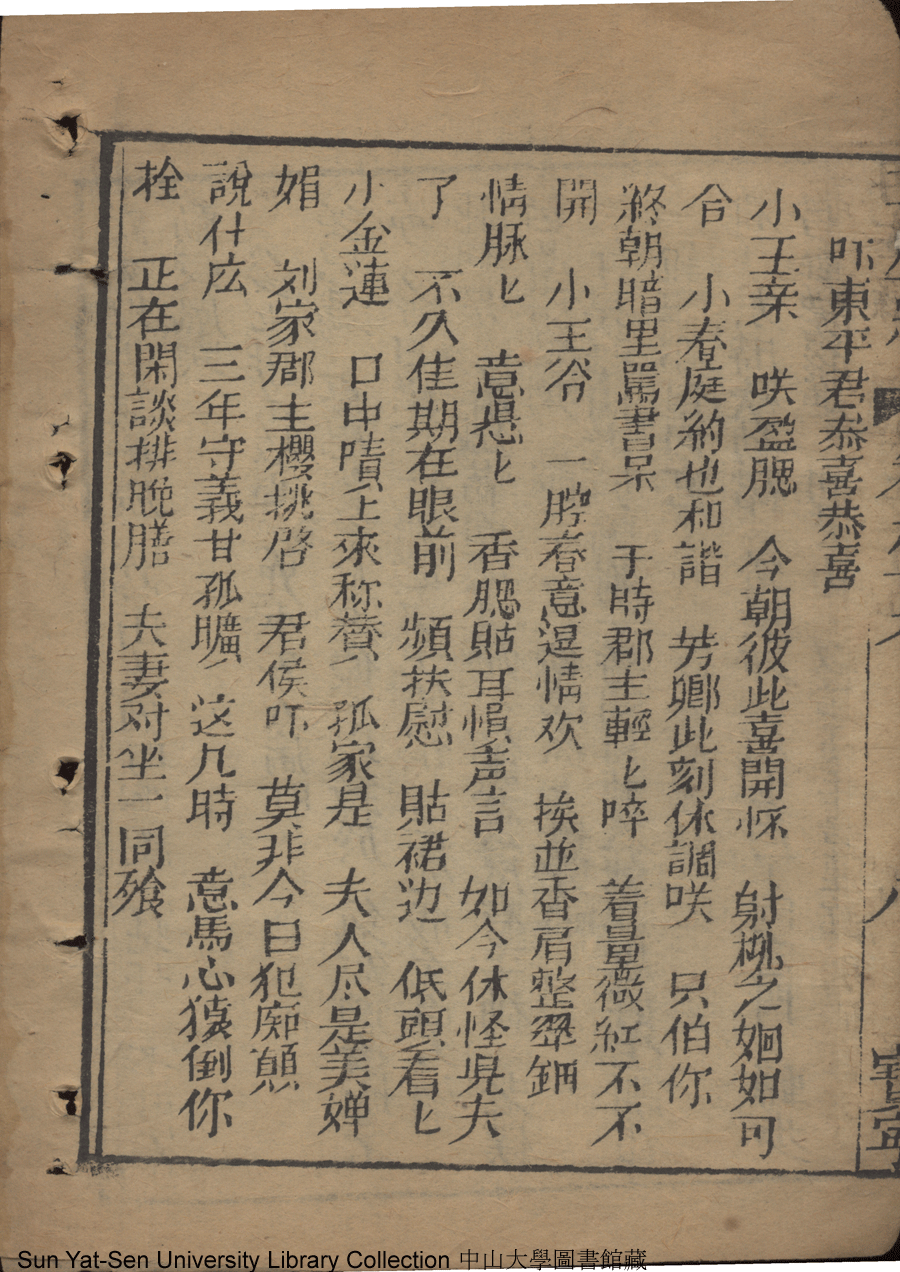 吓東平君恭喜恭喜
小王亲　咲盈腮　今朝彼此喜開怀　射桃之姻如可
合　小春庭約也和諧　芳卿此刻休調咲　只伯你
終朝暗里罵書呆　于時郡主輕匕啐　着量薇紅不不
開　小王爷　一腔春意逞情欢　挨並香肩整翠鈿
情脉匕　意悬匕　香腮貼耳惧声言　如今休怪児夫
了　不久佳期在眼前　頻扶慰　貼裙边　低頭看匕
小金蓮　口中嘖上來称賛　孤家是　夫人尽是美婵
娟　刘家郡主櫻挑啓　君侯吓　莫非今日犯痴顛
說什庅　三年守義甘孤曠　这几時　意馬心猿倒你
栓　正在閑談排晚膳　夫妻对坐一同飱
Sun Yat-Sen University Library Collection 中山大學圖書館藏